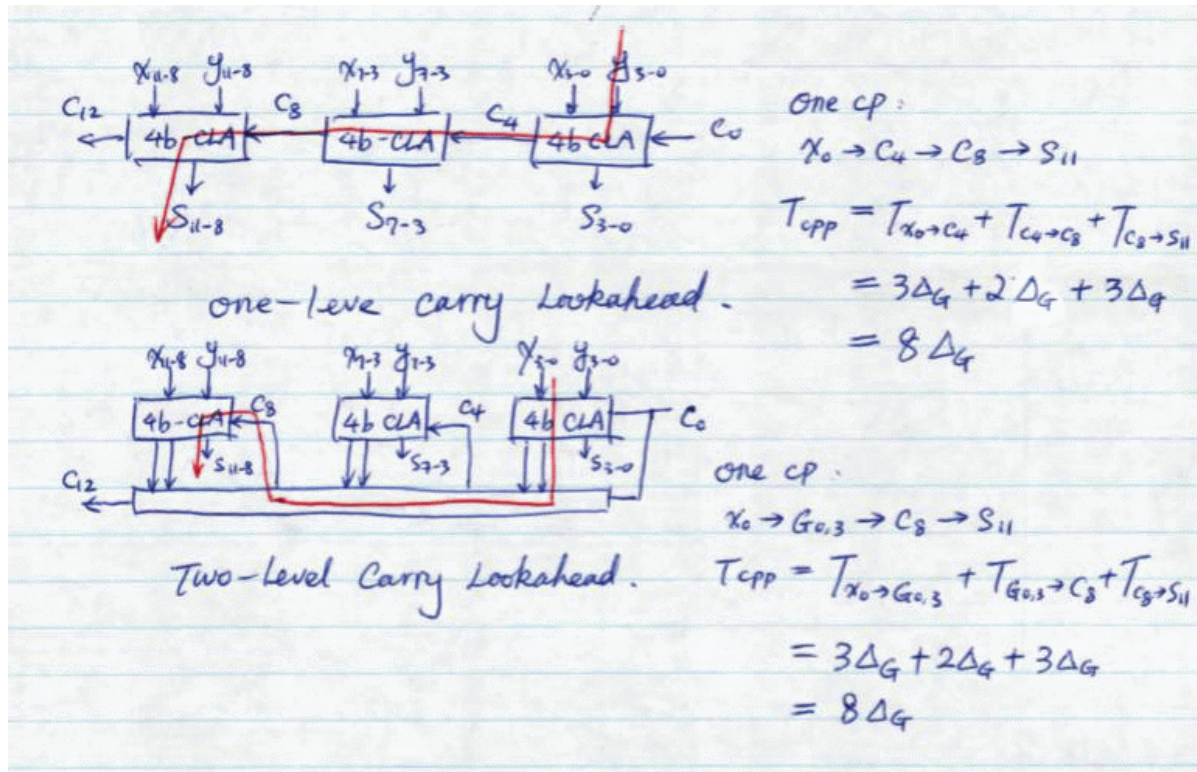 X₁₁₋₈ y₁₁₋₈ X₇₋₃ y₇₋₃ X₃₋₀ y₃₋₀
C₁₂ 4b-CLA C₈ 4b-CLA C₄ 4b CLA C₀
S₁₁₋₈ S₇₋₃ S₃₋₀
one-leve carry Lookahead.
one cp:
x₀ → C₄ → C₈ → S₁₁
Tcpp = Tx₀→C₄ + TC₄→C₈ + TC₈→S₁₁
= 3ΔG + 2ΔG + 3ΔG
= 8ΔG
X₁₁₋₈ y₁₁₋₈ X₇₋₃ y₇₋₃ X₃₋₀ y₃₋₀
4b-CLA C₈ 4b CLA C₄ 4b CLA C₀
S₁₁₋₈ S₇₋₃ S₃₋₀
C₁₂
Two-Level Carry Lookahead.
one cp.
x₀ → G₀,₃ → C₈ → S₁₁
Tcpp = Tx₀→G₀,₃ + TG₀,₃→C₈ + TC₈→S₁₁
= 3ΔG + 2ΔG + 3ΔG
= 8ΔG